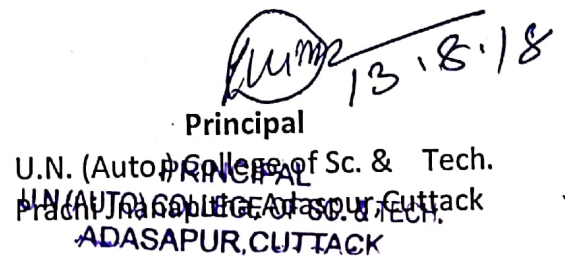 13.8.18
Principal
U.N. (Auto.) College of Sc. & Tech.
PRINCIPAL
Prachi Jnanapitha, Adaspur, Cuttack
U.N (AUTO) COLLEGE OF SC. & TECH.
ADASAPUR, CUTTACK